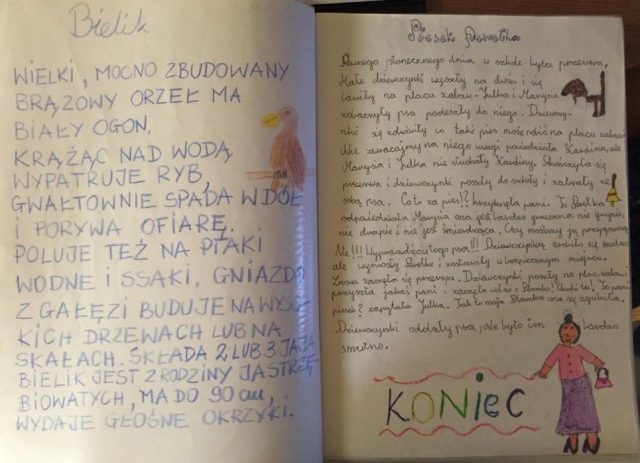 Bielik
WIELKI, MOCNO ZBUDOWANY
BRĄZOWY ORZEŁ MA
BIAŁY OGON.
KRĄŻĄC NAD WODĄ
WYPATRUJE RYB,
GWAŁTOWNIE SPADA W DÓŁ
I PORYWA OFIARĘ.
POLUJE TEŻ NA PTAKI
WODNE I SSAKI. GNIAZDO
Z GAŁĘZI BUDUJE NA WYSO
KICH DRZEWACH LUB NA
SKAŁACH. SKŁADA 2 LUB 3 JAJA
BIELIK JEST Z RODZINY JASTRZĘ
BIOWATYCH, MA DO 90 cm,
WYDAJE GŁOŚNE OKRZYKI.
Piesek Perełka
Pewnego słonecznego dnia w szkole była przerwa.
Małe dziewczynki wyszły na dwór i się
bawiły na placu zabaw. Julka i Marysia
zobaczyły psa podeszły do niego. Dziewczy-
nki się zdziwiły co taki pies może robić na placu zabaw
Nie zwracajmy na niego uwagi powiedziała Karolina, ale
Marysia i Julka nie słuchały Karoliny. Skończyła się
przerwa i dziewczynki poszły do szkoły i zabrały ze
sobą psa. Co to za pies!? krzyknęła pani. To Perełka
odpowiedziała Marysia ona jest bardzo grzeczna nie gryzie,
nie drapie i nie jest śmierdząca. Czy możemy ją przygarnąć
Nie!!! Wyprowadźcie tego psa!!! Dziewczynką zrobiło się smutno
ale wyniosły Perełkę i zostawiły w bezpiecznym miejscu.
Znowu zaczęła się przerwa. Dziewczynki poszły na plac zabaw
przyszła jakaś pani i zaczęła wołać: Blanko! Blanko tu! To pani
piesek? zapytała Julka. Tak to moja Blanka ona się zgubiła.
Dziewczynki oddały psa, ale było im bardzo
smutno.
KONIEC